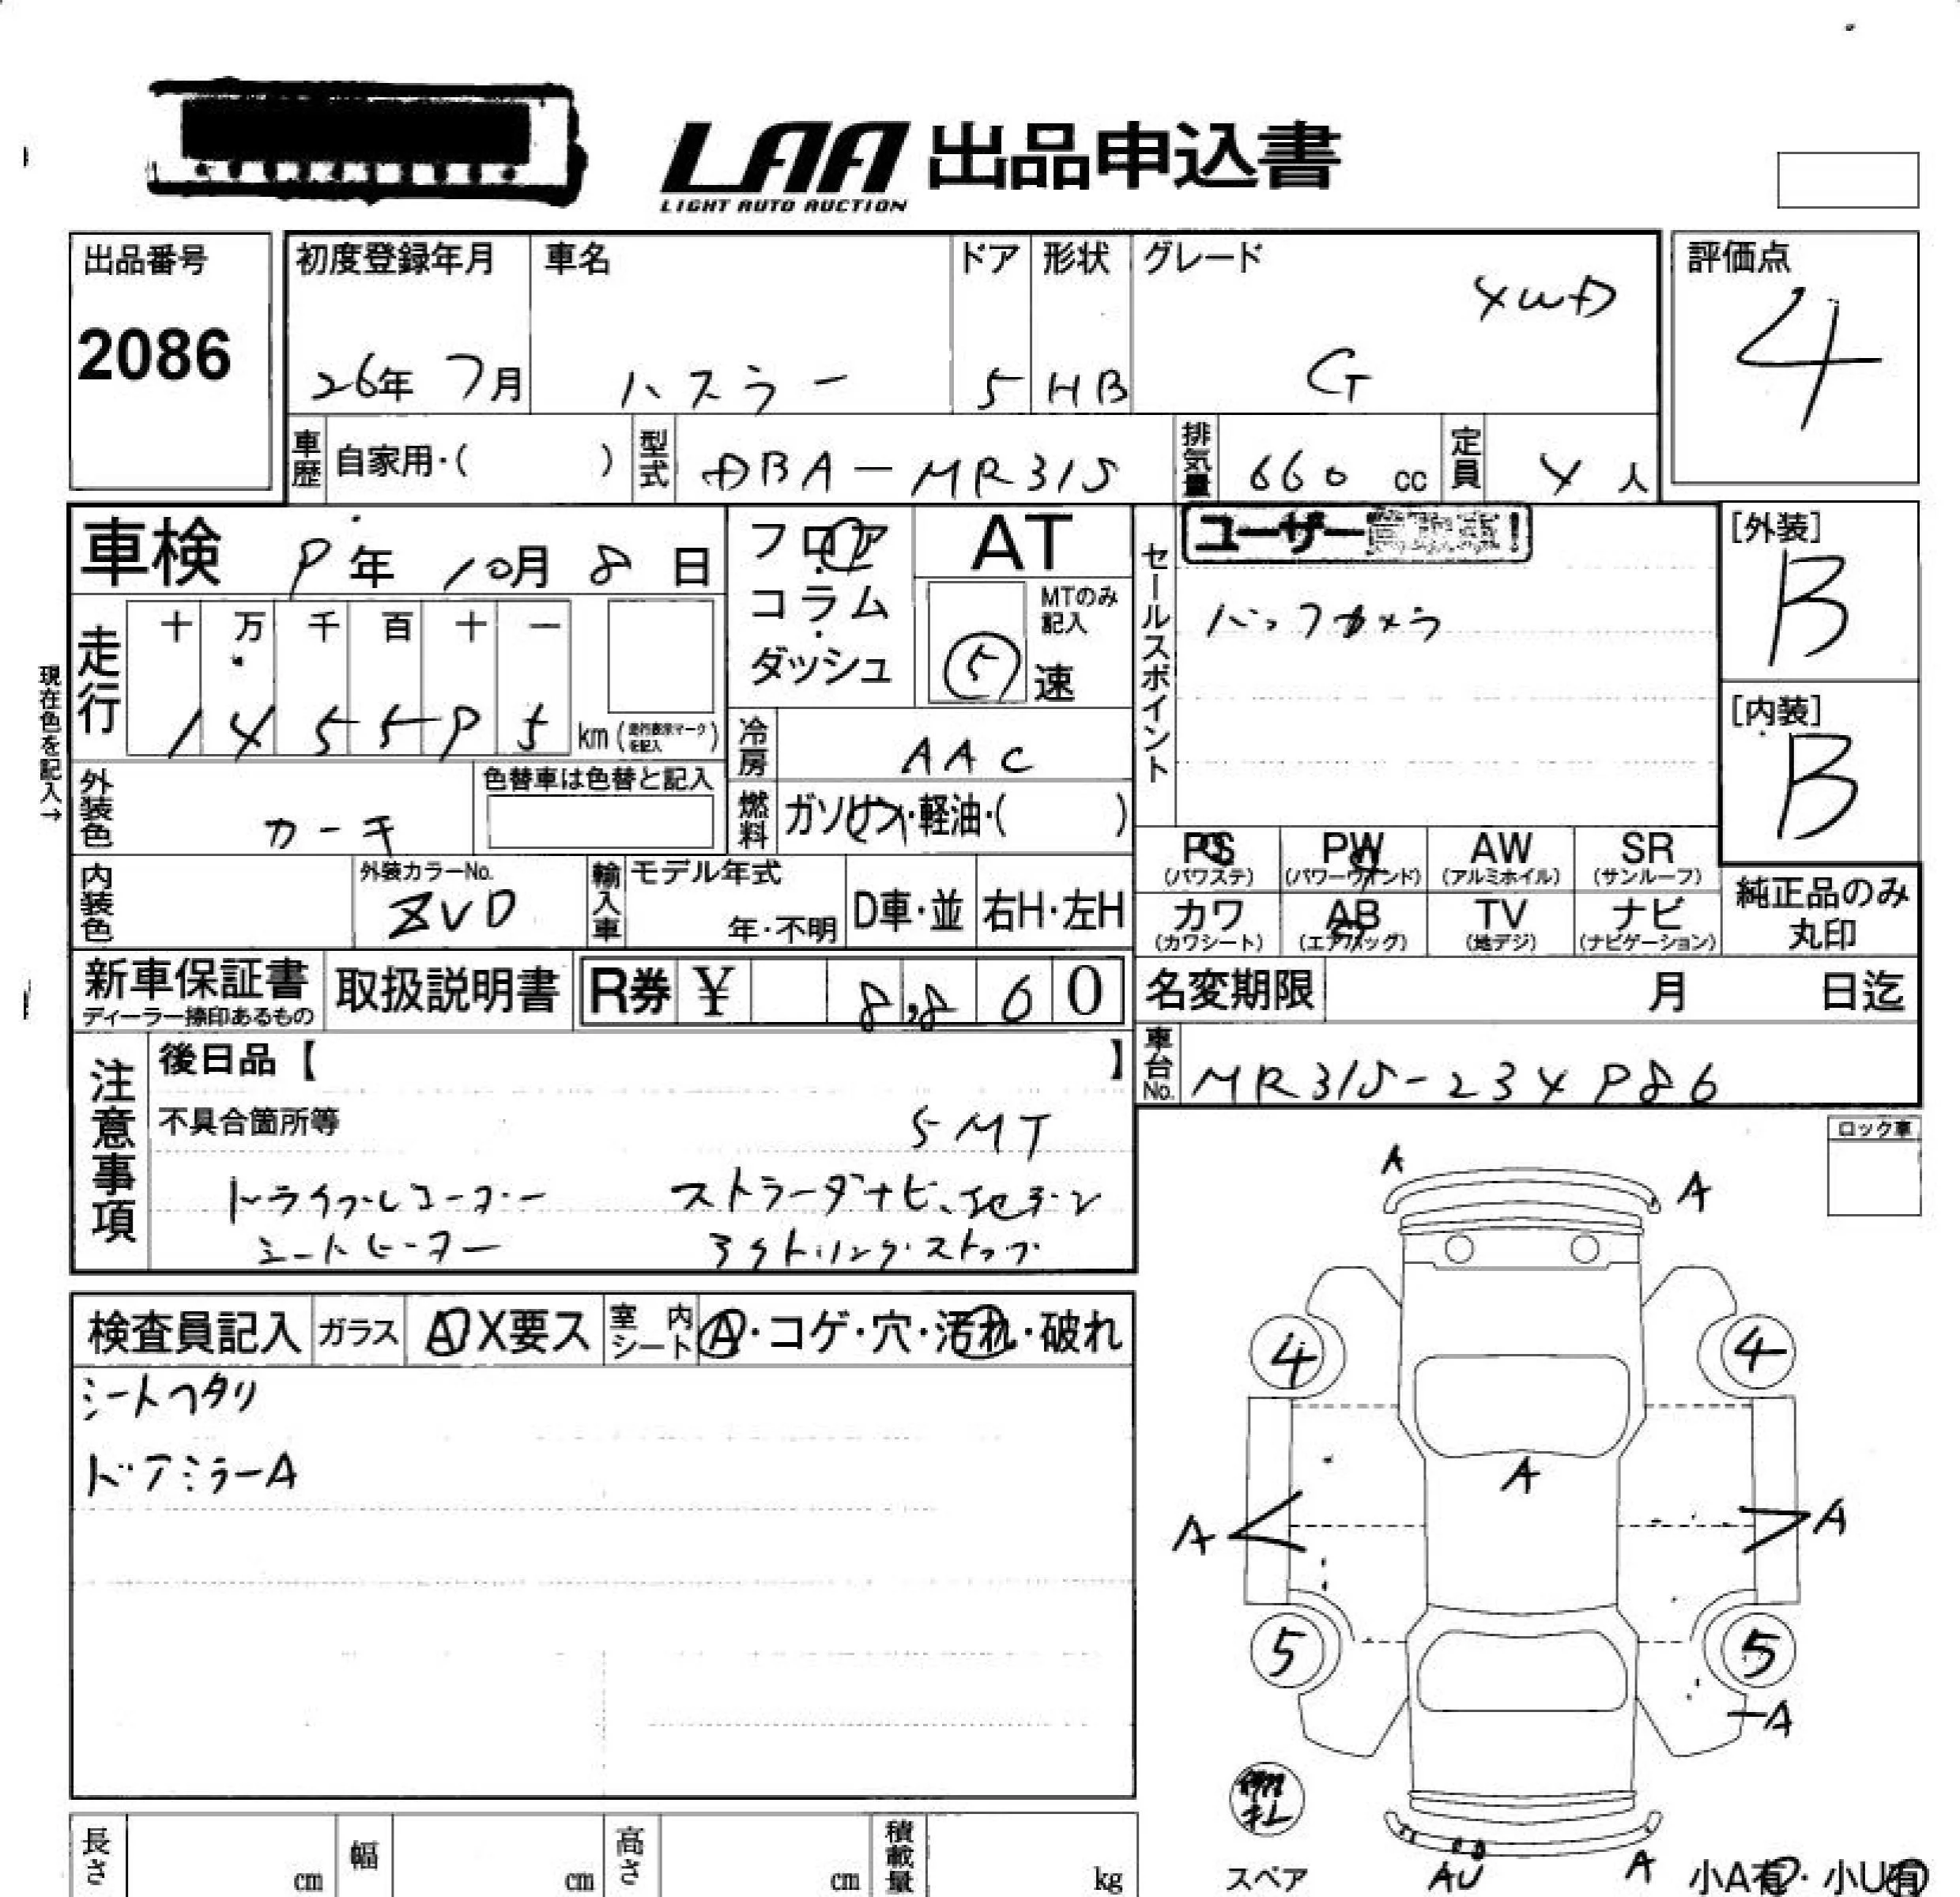 LAA 出品申込書
LIGHT AUTO AUCTION
出品番号
2086
初度登録年月
26年 7月
車名
ハスラー
ドア
5
形状
HB
グレード
4WD
G
評価点
4
車歴 自家用・( )
型式 DBA-MR31S
排気量 660 cc
定員 4 人
車検 9年 10月 8日
フロア・コラム・ダッシュ
AT
MTのみ記入
5 速
セールスポイント
ユーザー
バックカメラ
[外装]
B
[内装]
B
現在色を記入→
走行
十 万 千 百 十 一
1 4 5 5 9 5 km
冷房 AAC
燃料 ガソリン・軽油・( )
外装色 カーキ
色替車は色替と記入
内装色
外装カラーNo.
ZVD
輸入車
モデル年式
年・不明
D車・並
右H・左H
PS (パワステ)
PW (パワーウインド)
AW (アルミホイル)
SR (サンルーフ)
カワ (カワシート)
AB (エアバッグ)
TV (地デジ)
ナビ (ナビゲーション)
純正品のみ
丸印
新車保証書
ディーラー捺印あるもの
取扱説明書
R券 ¥ 8,860
名変期限 月 日迄
車台No. MR31S-234986
注意事項
後日品【 】
不具合箇所等
5MT
ドライブレコーダー ストラーダナビ、地デジ
シートヒーター アイドリングストップ
ロック車
検査員記入
ガラス A・X要ス
室内シート A・コゲ・穴・汚れ・破れ
シートヘタリ
ドアミラーA
A
A
4
4
A
A
A
5
5
A
スペア
AU
A
小A有・小U有
長さ cm
幅 cm
高さ cm
積載量 kg